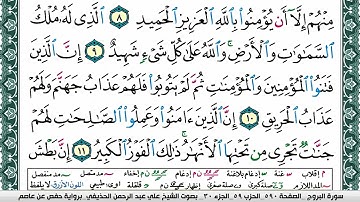 مِنْهُمْ إِلَّآ أَن يُؤْمِنُوا۟ بِٱللَّهِ ٱلْعَزِيزِ ٱلْحَمِيدِ ٨ ٱلَّذِى لَهُۥ مُلْكُ
ٱلسَّمَٰوَٰتِ وَٱلْأَرْضِ ۚ وَٱللَّهُ عَلَىٰ كُلِّ شَىْءٍ شَهِيدٌ ٩ إِنَّ ٱلَّذِينَ
فَتَنُوا۟ ٱلْمُؤْمِنِينَ وَٱلْمُؤْمِنَٰتِ ثُمَّ لَمْ يَتُوبُوا۟ فَلَهُمْ عَذَابُ جَهَنَّمَ وَلَهُمْ
عَذَابُ ٱلْحَرِيقِ ١٠ إِنَّ ٱلَّذِينَ ءَامَنُوا۟ وَعَمِلُوا۟ ٱلصَّٰلِحَٰتِ لَهُمْ
جَنَّٰتٌ تَجْرِى مِن تَحْتِهَا ٱلْأَنْهَٰرُ ۚ ذَٰلِكَ ٱلْفَوْزُ ٱلْكَبِيرُ ١١ إِنَّ بَطْشَ
سورة البروج الصفحة ٥٩٠ الحزب ٥٩ الجزء ٣٠ بصوت الشيخ علي عبد الرحمن الحذيفي برواية حفص عن عاصم